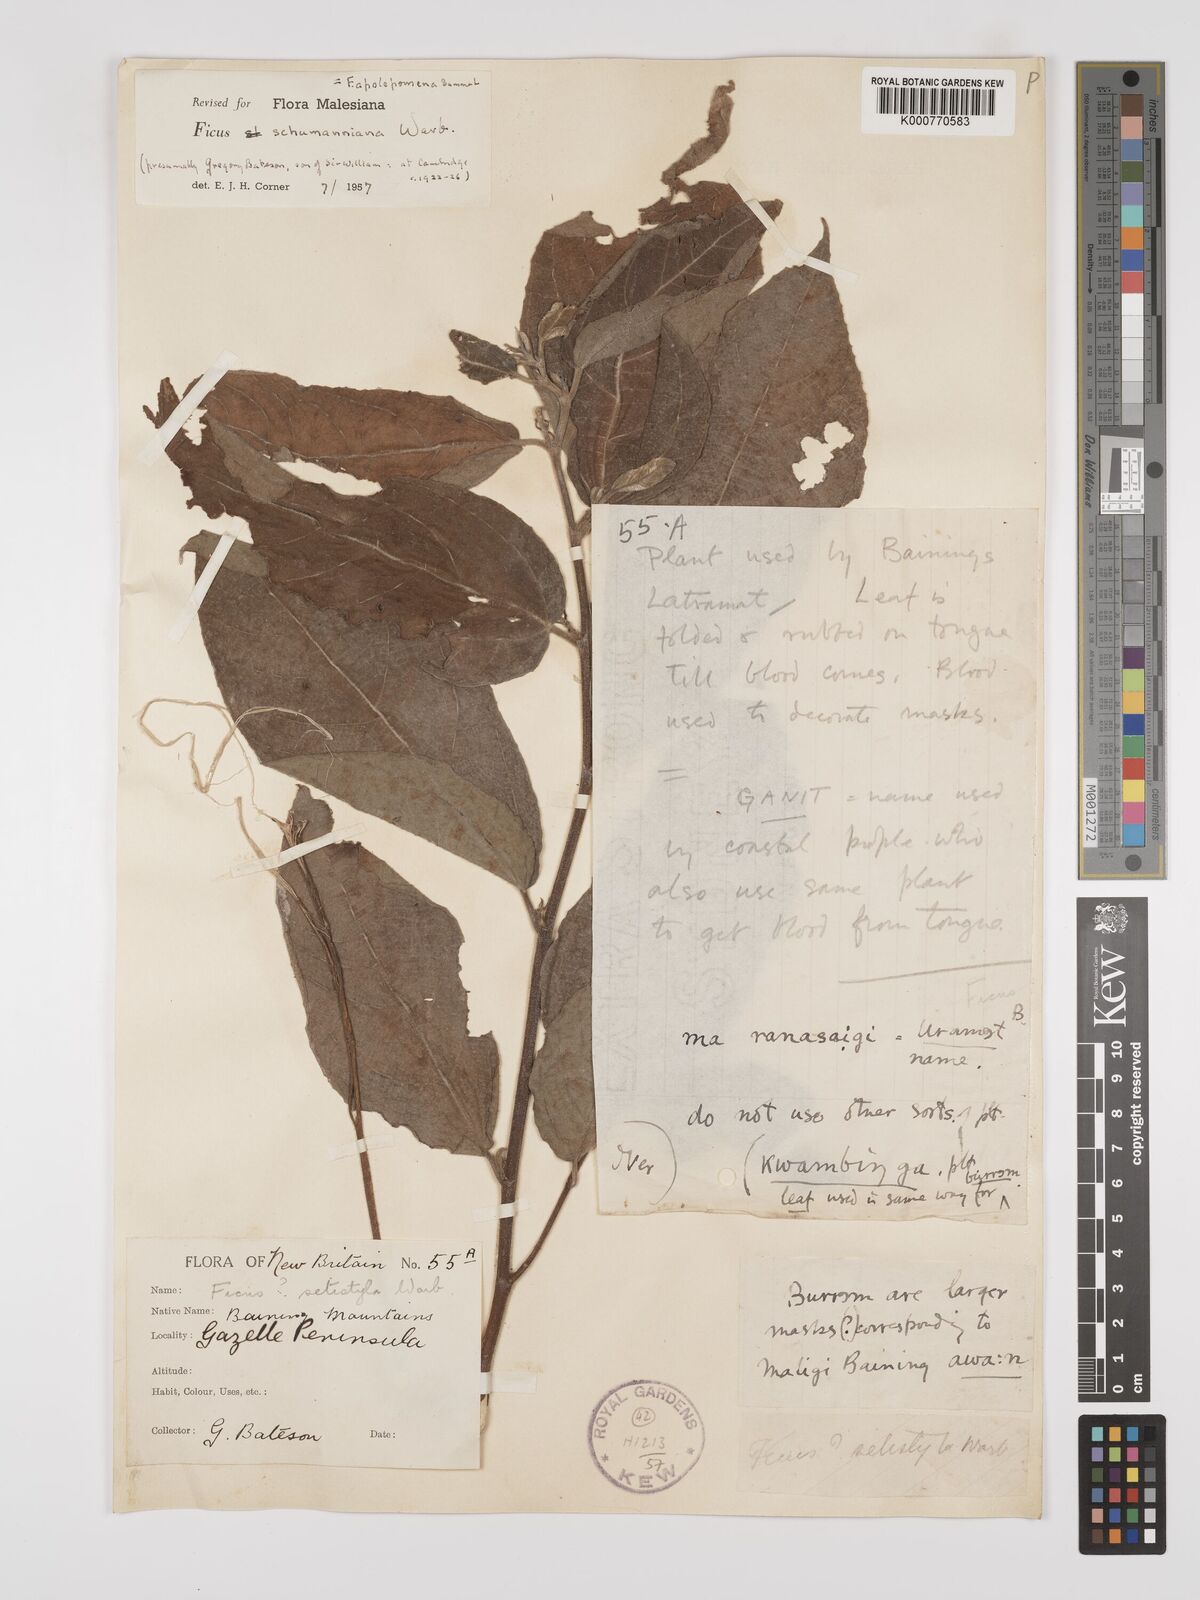 = F. apolepomena Summerh.
Revised for Flora Malesiana
Ficus st schumanniana Warb.
(presumably Gregory Bateson, son of Sir William = at Cambridge
c. 1922-26)
det. E. J. H. Corner 7/1957
ROYAL BOTANIC GARDENS KEW
K000770583
P
55·A
Plant used by Bainings
Latramat, Leaf is
folded & rubbed on tongue
till blood comes. Blood
used to decorate masks.
=
GANIT = name used
by coastal people who
also use same plant
to get blood from tongue.
Ficus
ma ranasaigi = Uramɔt B.
name.
do not use other sorts.
(Kwambiŋga. plt.
burrɔm.
leaf used in same way for ^
Over)
FLORA OF New Britain No. 55A
Name: Ficus ? setistyla Warb.
Native Name:
Baining Mountains
Locality: Gazelle Peninsula
Altitude:
Habit, Colour, Uses, etc.:
Collector: G. Bateson Date:
Burrɔm are larger
masks (?) corresponding to
Maligi Baining awa:n
Ficus ? setistyla Warb
ROYAL GARDENS
42
H1213
57
KEW
inches
centimeters
Density
Don Williams
M001272
Royal Botanic Gardens
Kew
0 1 2 3 4 5 6 7 8 9 10
cm
copyright reserved